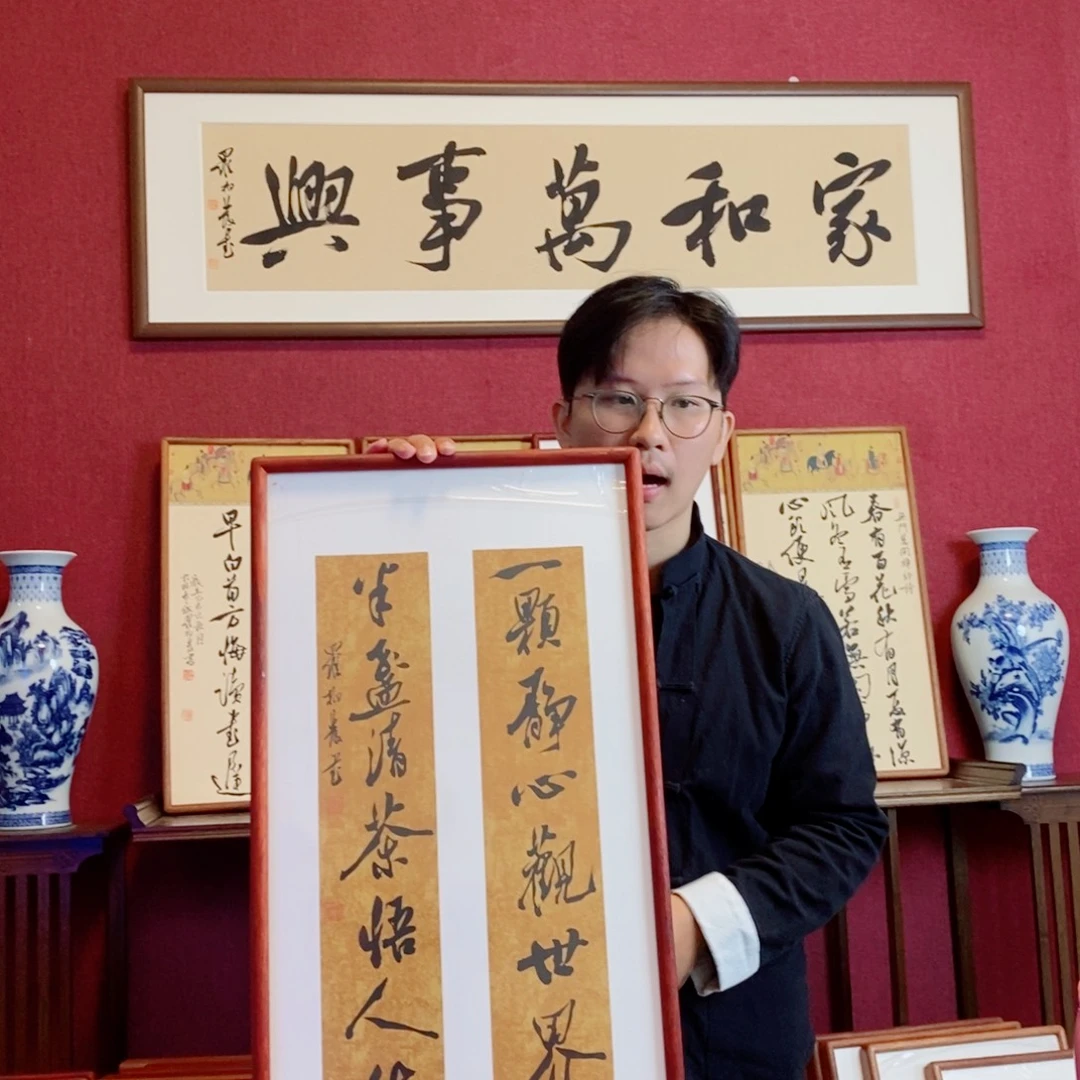 家和萬事興
春有百花秋有月夏有涼
風冬有雪若無
心頭便
一顆靜心觀世界
半盞清茶悟人
早白首方悔讀書遲